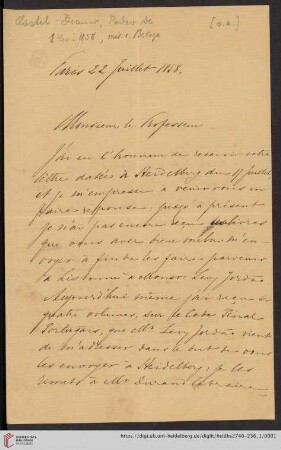 Castel Branco, Pedro de
[o.a.]
Paris 22 Juillet 1858.
Monsieur le Professeur
J'ai eu l'honneur de recevoir votre
lettre datée à Heidelberg du 17 Juillet
et je m'empresse à venir vous en
faire réponse; jusqu'à présent
je n'ai pas encore reçu livres
que vous avez bien voulu m'en-
voyer à fin de les faire parvenir
à Lisbonne à Levy Jordão
Aujourd'hui même j'ai reçu
quatre volumes, sur le Code Pénal
Portugais, que Mr. Levy Jordão vient
de m'adresser dans le but de vous
les envoyer à Heidelberg; je les
remets à Mr Durand Libraire
https://digi.ub.uni-heidelberg.de/diglit/heidhs2746-236_1/0001